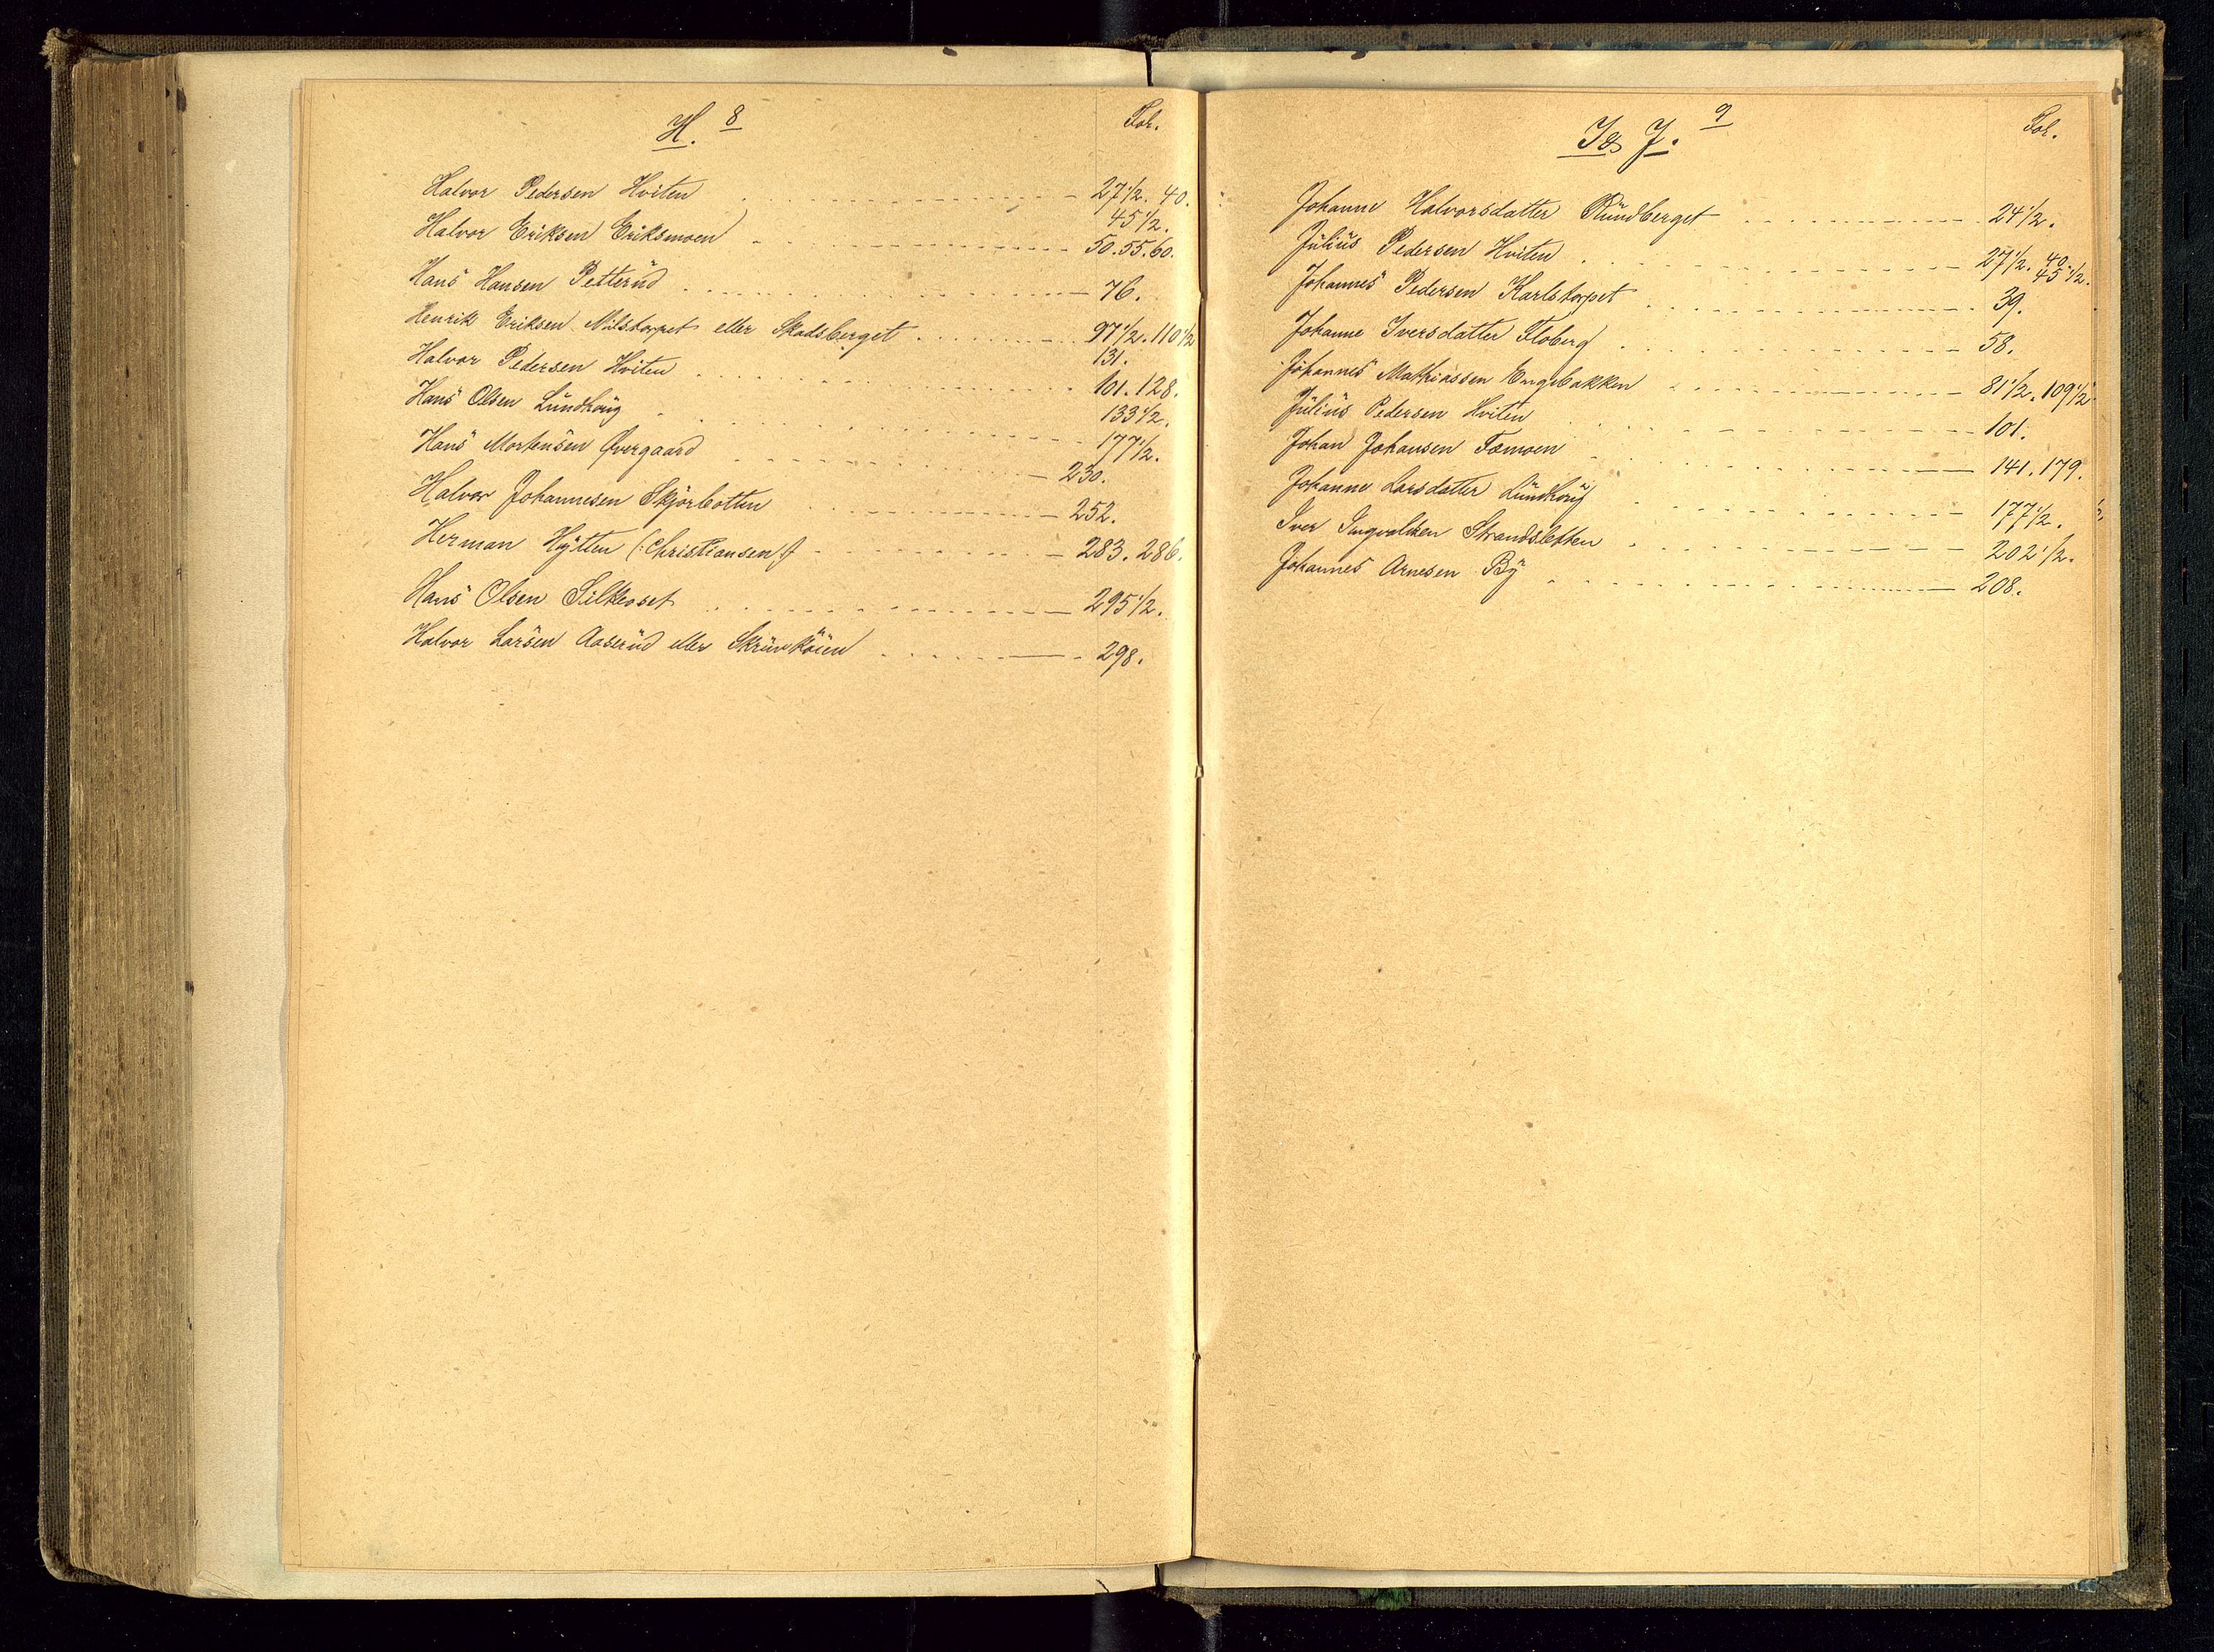 H. 8 Fol.
Halvor Pedersen Hviten 27 1/2. 40.
45 1/2.
Halvor Eriksen Eriksmoen 50. 55. 60.
Hans Hansen Petterud 76.
Henrik Eriksen Nilstorpet eller Skadsberget 97 1/2. 110 1/2
131.
Halvor Pedersen Hviten 101. 128.
133 1/2.
Hans Olsen Lundhoug 177 1/2.
Hans Mortensen Øvergaard 230.
Halvor Johannesen Skjörbotten 252.
Herman Hytten (: Christiansen :) 283. 286.
Hans Olsen Silkeoset 295 1/2.
Halvor Larsen Aaserud eller 298.
I & J. 9 Fol.
Johanne Halvorsdatter Rundberget 24 1/2.
Julius Pedersen Hviten 27 1/2. 40.
45 1/2.
Johannes Pedersen Karlstorpet 39.
Johanne Iversdatter Floberg 58.
Johannes Mathiassen Engebakken 81 1/2. 109 1/2
Julius Pedersen Hviten 101.
Johan Johansen Tomoen 141. 179.
Johanne Larsdatter Lundhoug 177 1/2.
Iver Ingvaldsen Strandsletten 202 1/2.
Johannes Arnesen By 208.